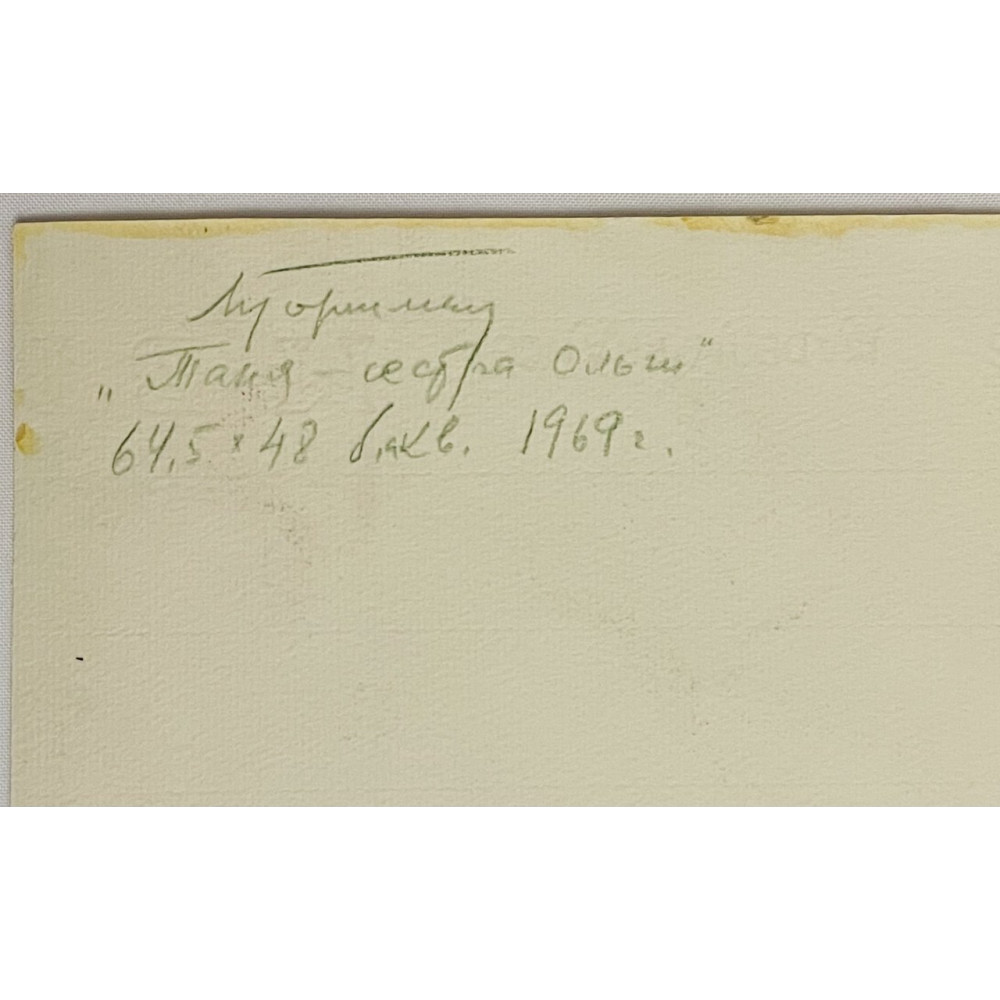 „Таня – сестра Ольги"
64,5 × 48 б.акв. 1969 г.